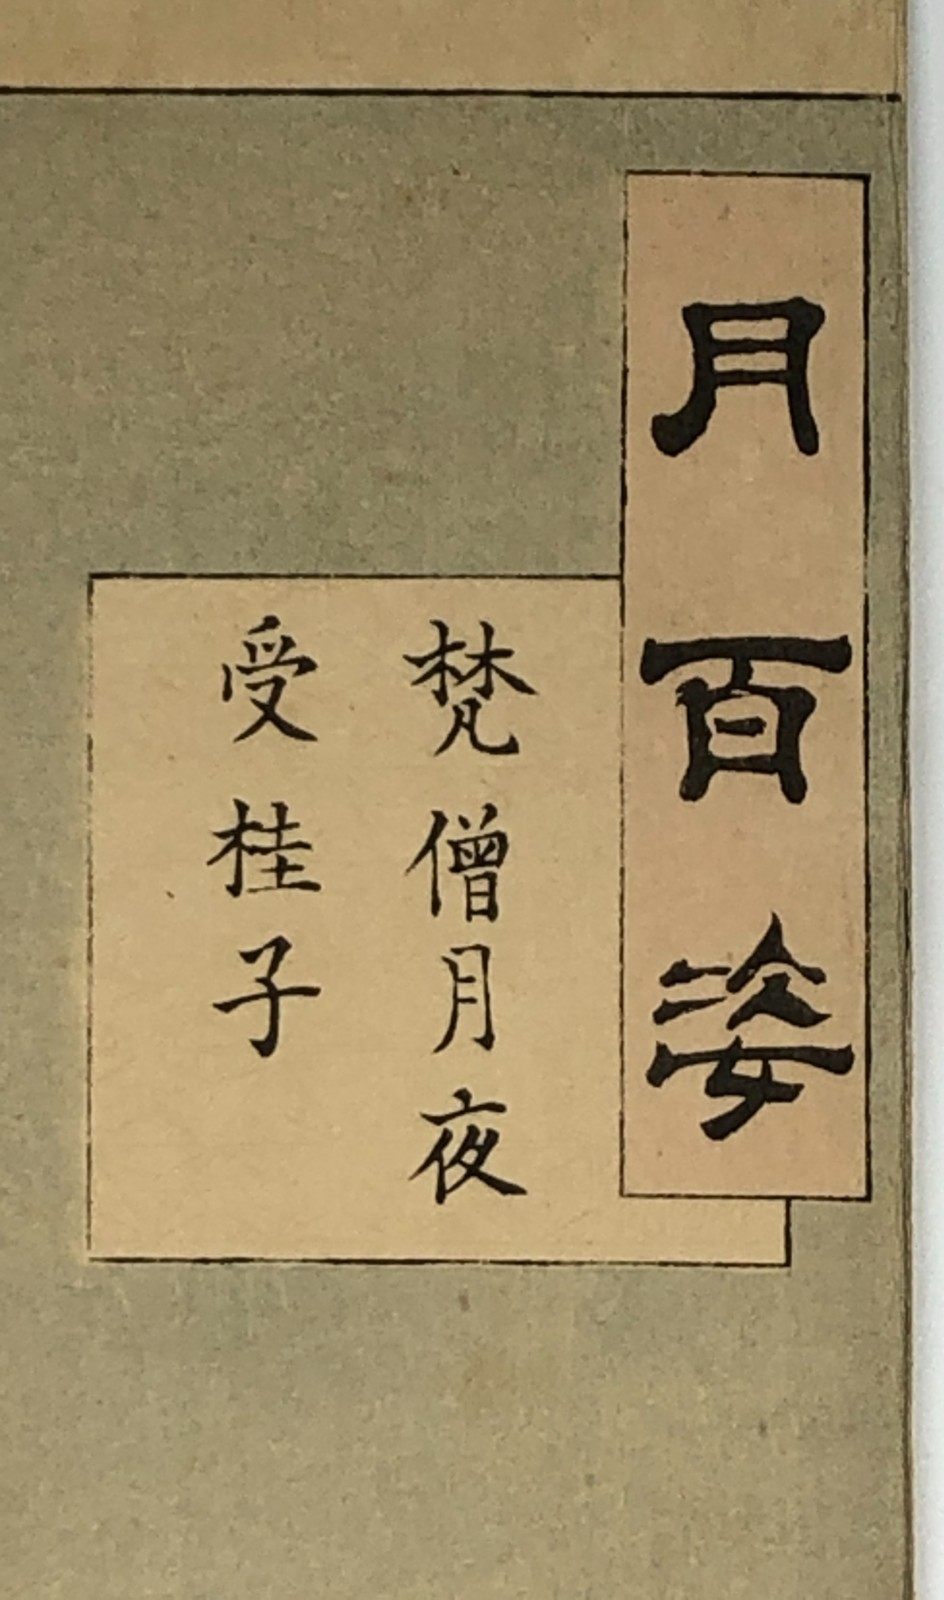 月百姿
梵僧月夜
受桂子